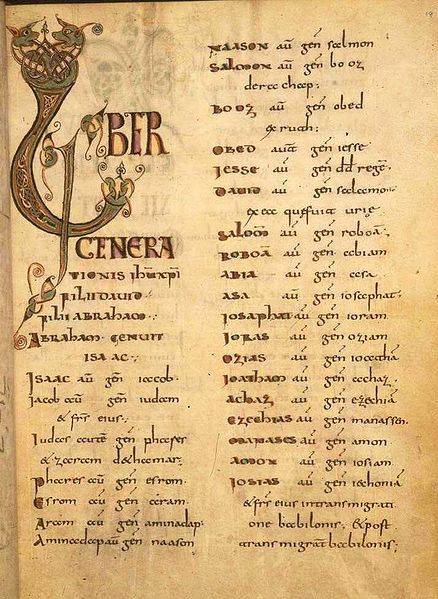 LIBER
GENERA
TIONIS ihū xpī
FILII DAVID
FILII ABRAHAM·
ABRAHAM GENUIT
ISAAC·
ISAAC aū gen̄ iacob·
iacob aū gen̄ iudam
& fr̄s eius·
Iudas autē gen̄ phares
& zaram de thamar·
Phares aū gen̄ esrom·
Esrom aū gen̄ aram·
Aram aū gen̄ aminadap·
Aminadap aū gen̄ naason
NAASON aū gen̄ salmon
SALMON aū gen̄ booz
de rachap·
BOOZ aū gen̄ obed
ex ruth·
OBED aut̄ gen̄ iesse
IESSE aū gen̄ dd regē·
DAVID aū gen̄ salomo·
ex ea que fuit urie
SALOM̄ aū gen̄ roboā·
ROBOĀ aū gen̄ abiam
ABIA aū gen̄ asa
ASA aū gen̄ iosaphat·
IOSAPHAT aū gen̄ ioram·
IORAS aū gen̄ oziam
OZIAS aū gen̄ ioathā
IOATHAM aū gen̄ achaz·
ACHAZ aū gen̄ ezechiā
EZECHIAS aū gen̄ manassen·
MANASES aū gen̄ amon
AMON aū gen̄ iosiam·
IOSIAS aū gen̄ iechoniā
& fr̄s eius in transmigrati
one babilonis, & post
transmigrat̄ babilonis·